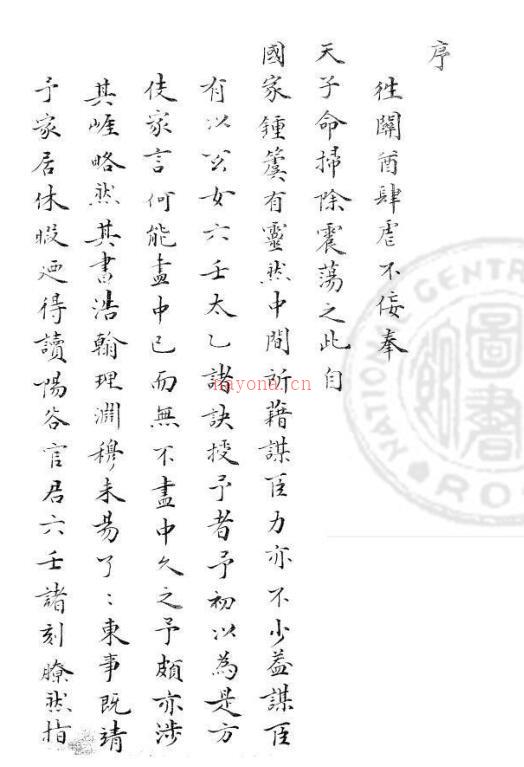 序
徃關酋肆虐不佞奉
天子命掃除震蕩之此自
國家鍾簴有靈然中間所藉謀臣力亦不少益謀臣
有以公女六壬太乙諸訣授予者予初以為是方
伎家言何能盡中已而無不盡中久之予頗亦涉
其崕略然其書浩翰理淵穆未易了〻東事既靖
予家居休暇廼得讀陽谷官君六壬諸刻瞭然指
nayona.cn
NATIONAL CENTRAL
圖書